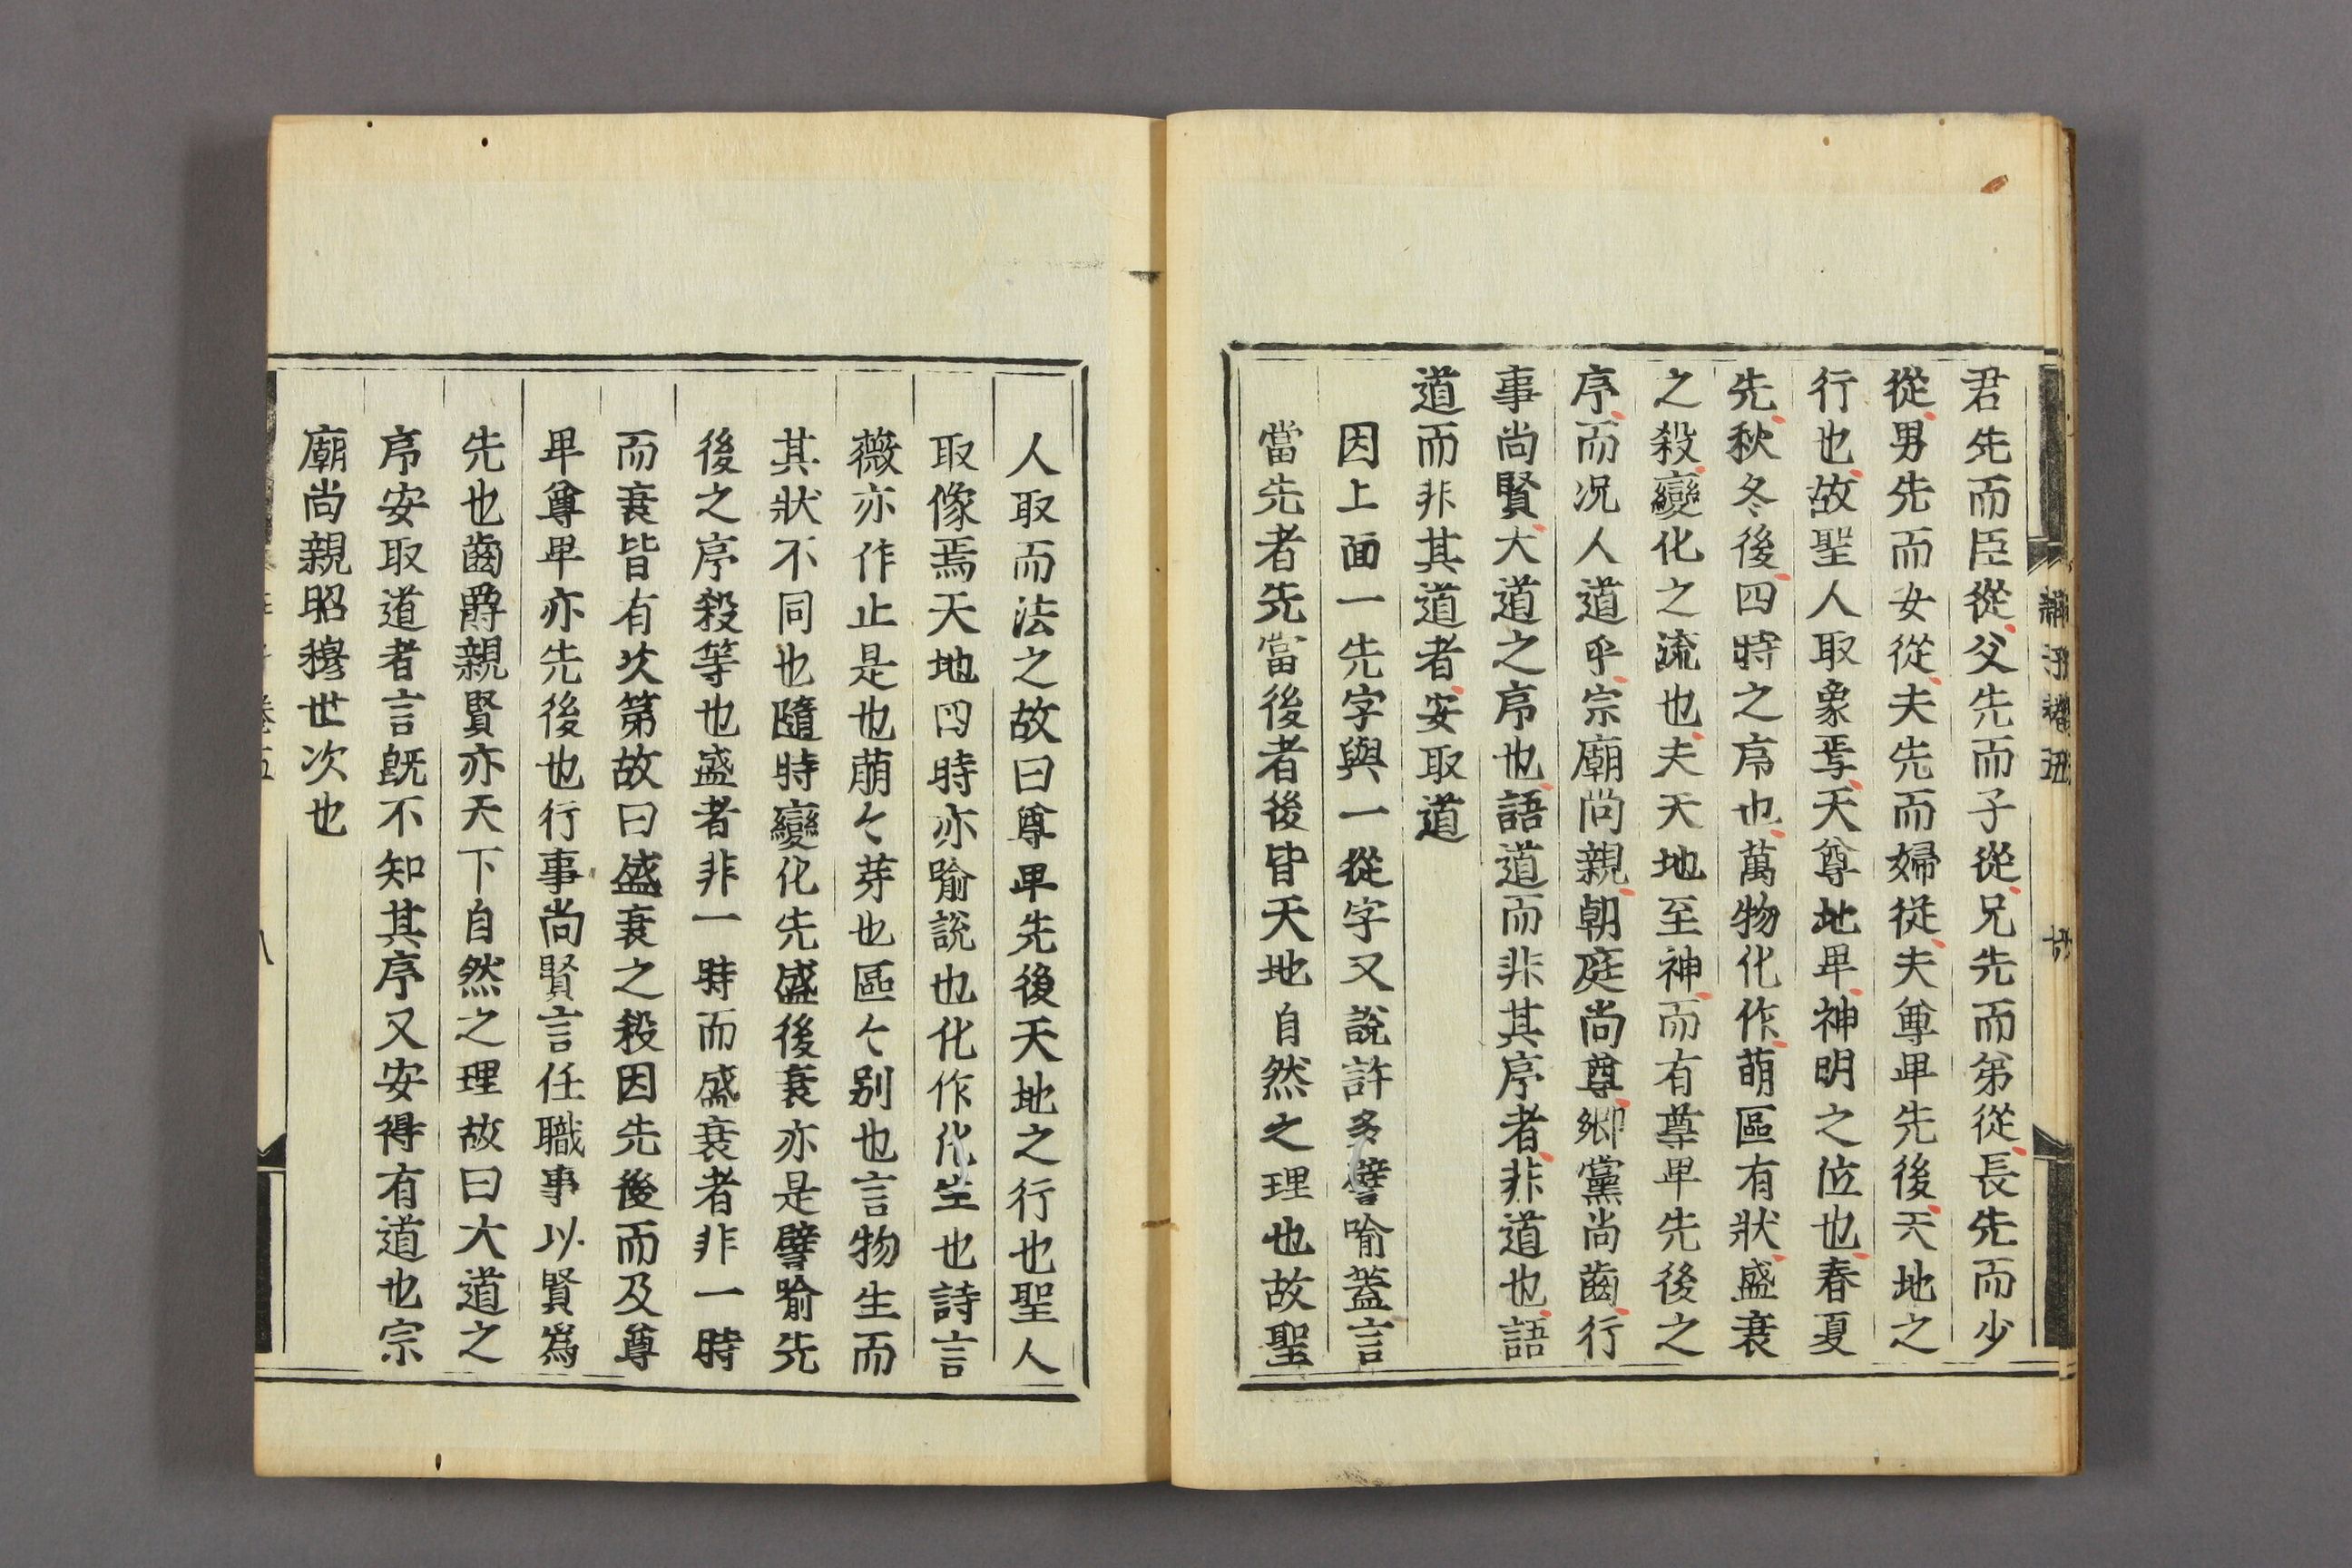 君先而臣從父先而子從兄先而弟從長先而少
從男先而女從夫先而婦從夫尊卑先後天地之
行也故聖人取象焉天尊地卑神明之位也春夏
先秋冬後四時之序也萬物化作萌區有狀盛衰
之殺變化之流也夫天地至神而有尊卑先後之
序而况人道乎宗廟尚親朝庭尚尊鄉黨尚齒行
事尚賢大道之序也語道而非其序者非道也語
道而非其道者安取道
因上面一先字與一從字又說許多譬喻蓋言
當先者先當後者後皆天地自然之理也故聖
人取而法之故曰尊卑先後天地之行也聖人
取像焉天地四時亦喻說也化作化生也詩言
薇亦作止是也萠々芽也區々別也言物生而
其狀不同也隨時變化先盛後衰亦是譬喻先
後之序殺等也盛者非一時而盛衰者非一時
而衰皆有次第故曰盛衰之殺因先後而及尊
卑尊卑亦先後也行事尚賢言任職事以賢爲
先也齒爵親賢亦天下自然之理故曰大道之
序安取道者言旣不知其序又安得有道也宗
廟尚親昭穆世次也
卷五
八